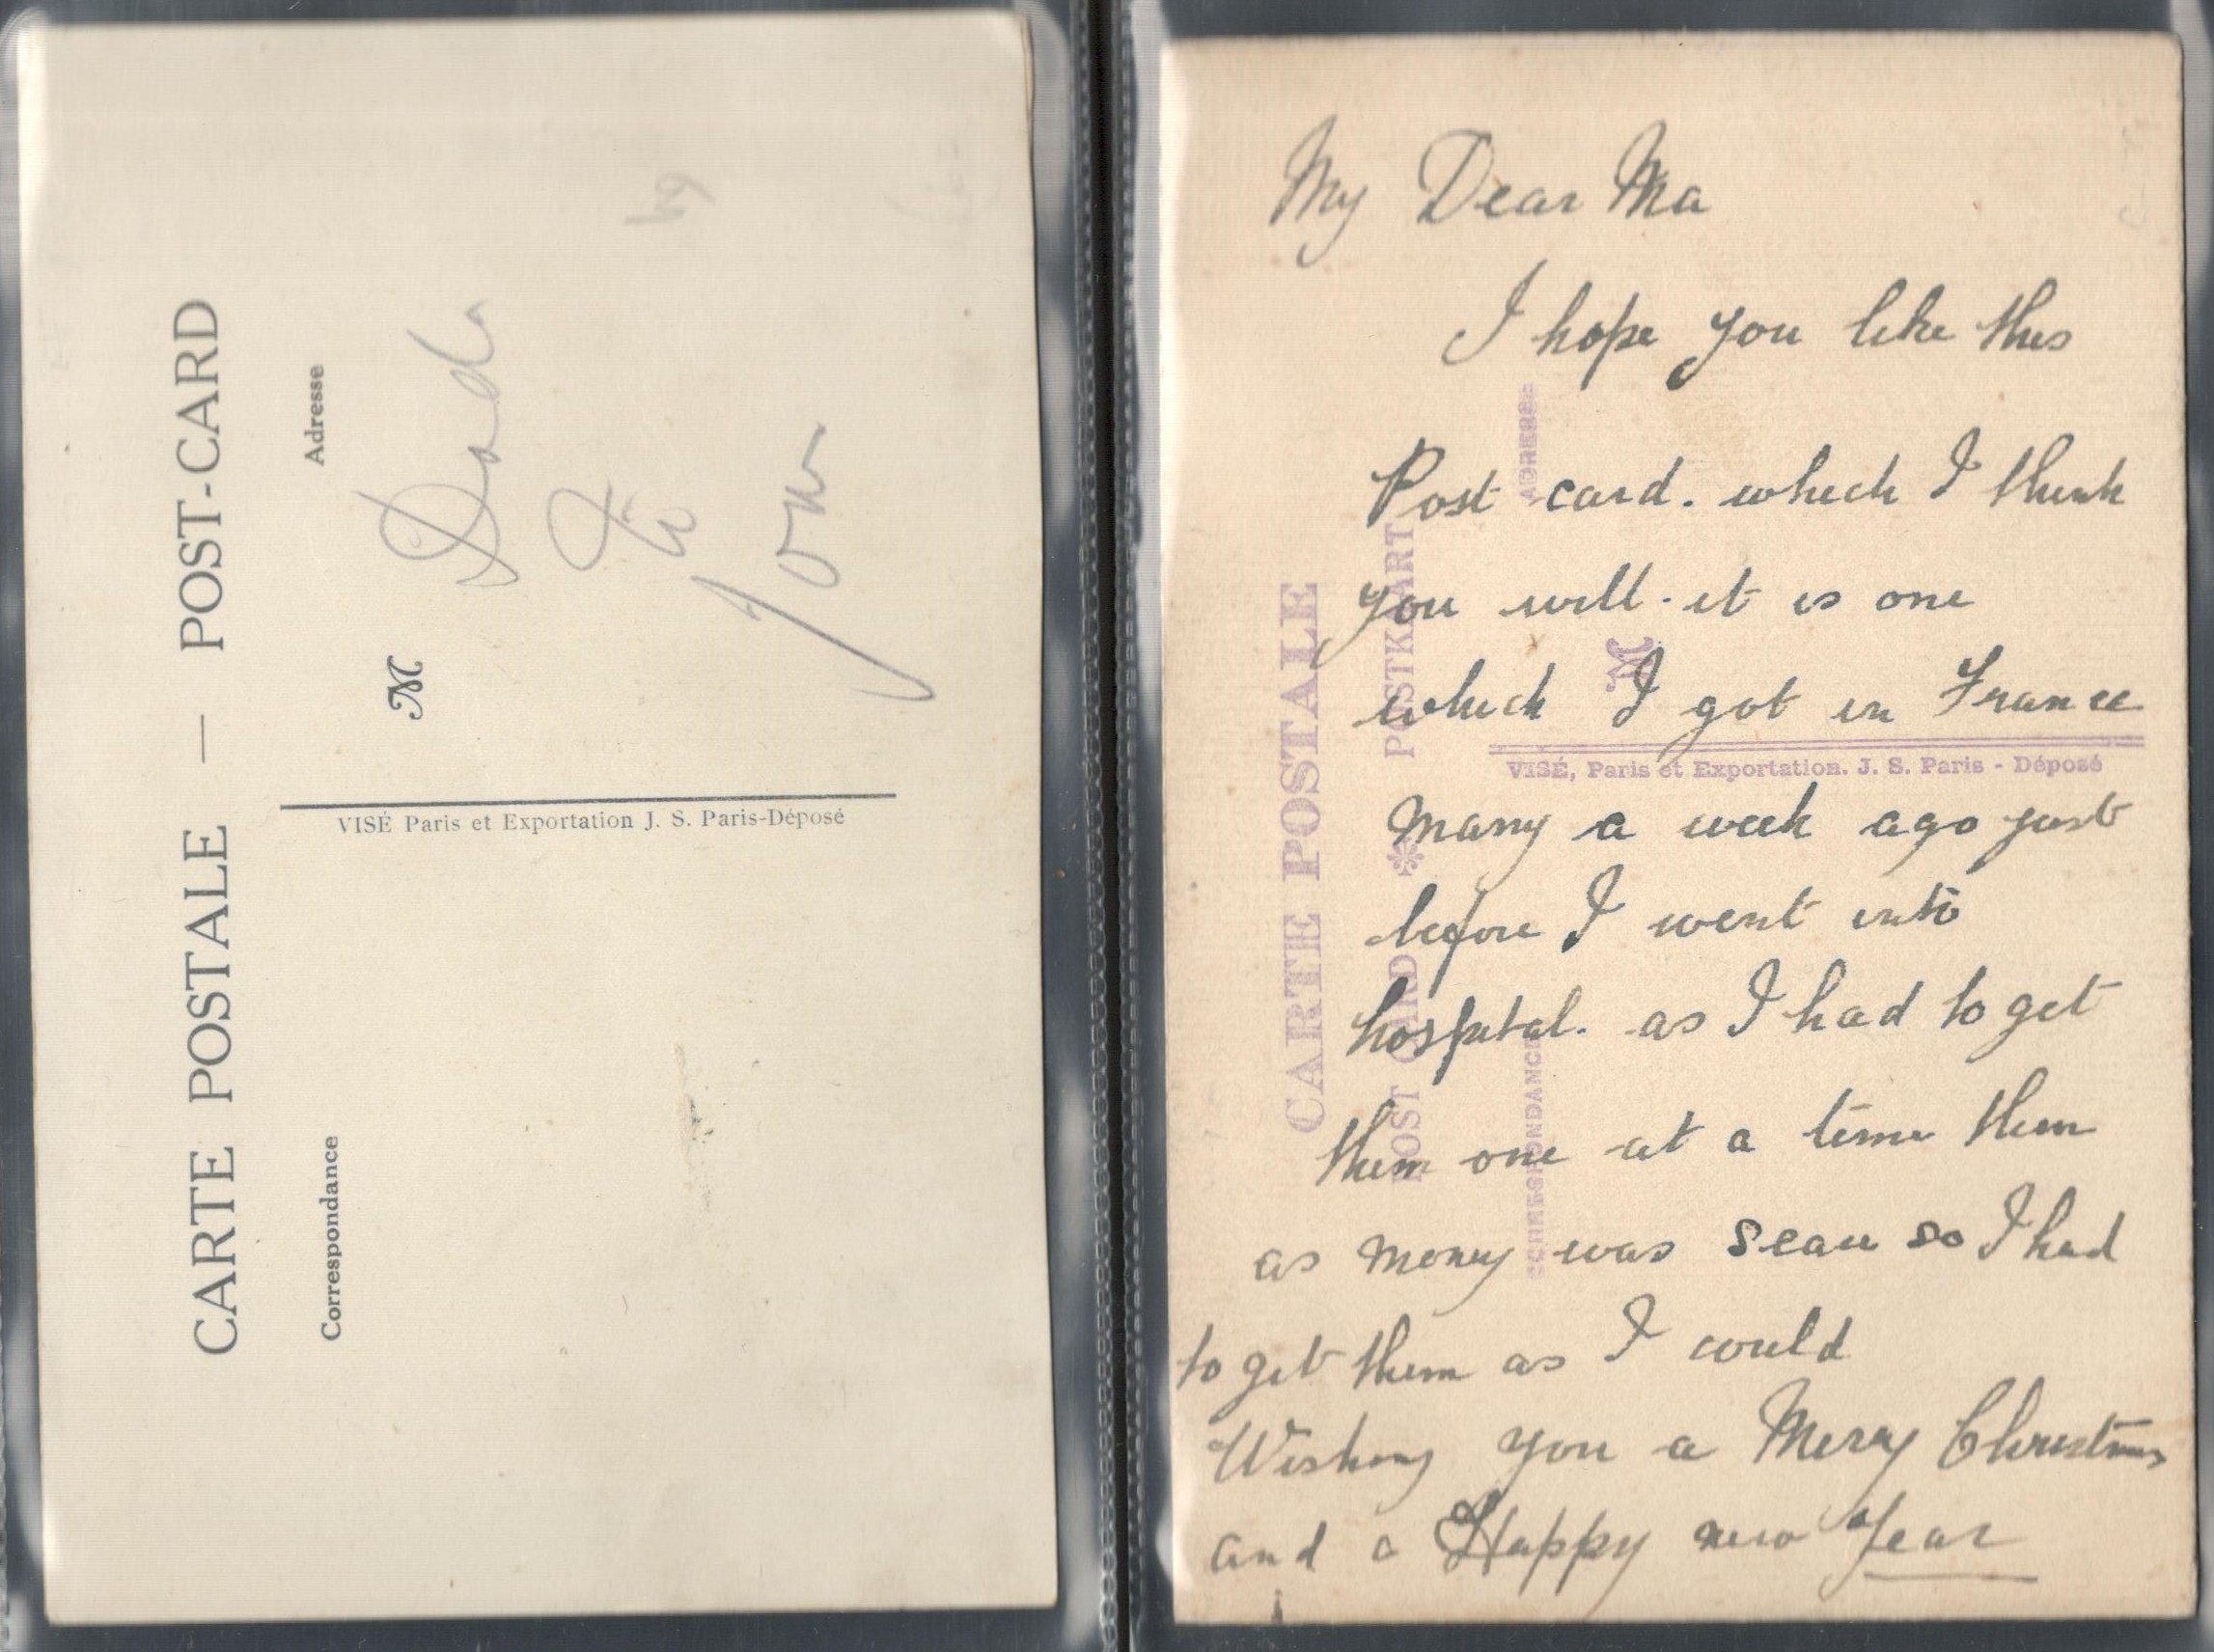 CARTE POSTALE — POST-CARD
Correspondance
Adresse
M
Dada
to
VISÉ Paris et Exportation J. S. Paris-Déposé
My Dear Ma
I hope you like this
Post card. which I think
you will. it is one
which I got in France
many a week ago just
before I went into
hospital. as I had to get
them one at a time then
as money was scarce so I had
to get them as I could
Wishing you a Merry Christmas
and a Happy new Year
CARTE POSTALE
POST CARD * POSTKAART
CORRESPONDANCE
ADRESSE
M
VISÉ, Paris et Exportation. J. S. Paris - Déposé